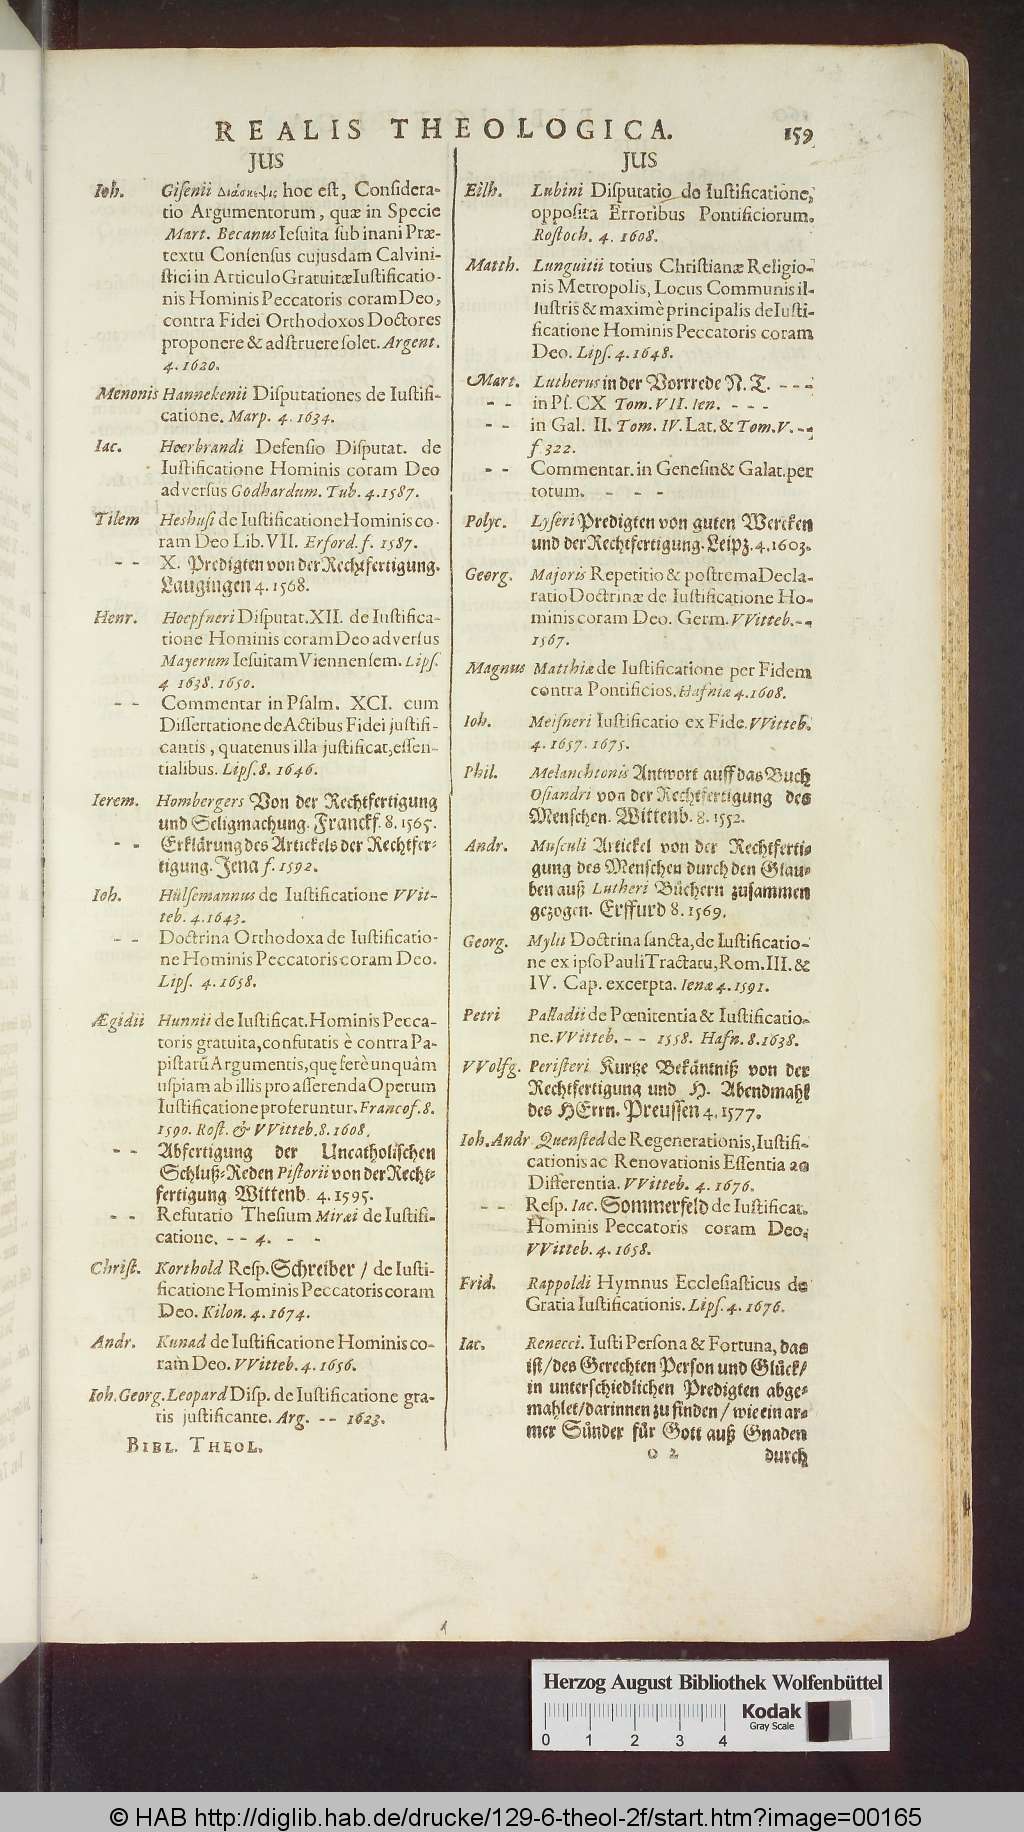 REALIS THEOLOGICA. 159
JUS
Ioh. Gisenii Διάσκεψις hoc est, Considera-
tio Argumentorum, quæ in Specie
Mart. Becanus Iesuita sub inani Præ-
textu Consensus cujusdam Calvini-
stici in Articulo Gratuitæ Iustificatio-
nis Hominis Peccatoris coram Deo,
contra Fidei Orthodoxos Doctores
proponere & adstruere solet. Argent.
4. 1620.
Menonis Hannekenii Disputationes de Iustifi-
catione. Marp. 4. 1634.
Iac. Heerbrandi Defensio Disputat. de
Iustificatione Hominis coram Deo
adversus Godhardum. Tub. 4. 1587.
Tilem Heshusi de Iustificatione Hominis co-
ram Deo Lib. VII. Erford. f. 1587.
- - X. Predigten von der Rechtfertigung.
Laugingen 4. 1568.
Henr. Hoepfneri Disputat. XII. de Iustifica-
tione Hominis coram Deo adversus
Mayerum Iesuitam Viennensem. Lips.
4 1638. 1650.
- - Commentar in Psalm. XCI. cum
Dissertatione de Actibus Fidei justifi-
cantis, quatenus illa justificat, essen-
tialibus. Lips. 8. 1646.
Ierem. Hombergers Von der Rechtfertigung
und Seligmachung. Franckf. 8. 1565.
- - Erklärung des Artickels der Rechtfer-
tigung. Jena f. 1592.
Ioh. Hülsemannus de Iustificatione VVit-
teb. 4. 1643.
- - Doctrina Orthodoxa de Iustificatio-
ne Hominis Peccatoris coram Deo.
Lips. 4. 1658.
Ægidii Hunnii de Iustificat. Hominis Pecca-
toris gratuita, confutatis è contra Pa-
pistarũ Argumentis, quę ferè unquàm
uspiam ab illis pro asserenda Operum
Iustificatione proferuntur. Francof. 8.
1590. Rost. & VVitteb. 8. 1608.
- - Abfertigung der Uncatholischen
Schluß-Reden Pistorii von der Recht-
fertigung Wittenb. 4. 1595.
- - Refutatio Thesium Miræi de Iustifi-
catione. - - 4. - -
Christ. Korthold Resp. Schreiber / de Iusti-
ficatione Hominis Peccatoris coram
Deo. Kilon. 4. 1674.
Andr. Kunad de Iustificatione Hominis co-
ram Deo. VVitteb. 4. 1656.
Ioh. Georg. Leopard Disp. de Iustificatione gra-
tis justificante. Arg. - - 1623.
BIBL. THEOL.
JUS
Eilh. Lubini Disputatio de Iustificatione,
opposita Erroribus Pontificiorum.
Rostoch. 4. 1608.
Matth. Lunguitii totius Christianæ Religio-
nis Metropolis, Locus Communis il-
lustris & maximè principalis de Iusti-
ficatione Hominis Peccatoris coram
Deo. Lips. 4. 1648.
Mart. Lutherus in der Vorrrede N. T. - - -
- - in Ps. CX Tom. VII. Ien. - - -
- - in Gal. II. Tom. IV. Lat. & Tom. V. - -
f 322.
- - Commentar. in Genesin & Galat. per
totum. - - -
Polyc. Lyseri Predigten von guten Wercken
und der Rechtfertigung. Leipz. 4. 1603.
Georg. Majoris Repetitio & postrema Decla-
ratio Doctrinæ de Iustificatione Ho-
minis coram Deo. Germ. VVitteb. - -
1567.
Magnus Matthiæ de Iustificatione per Fidem
contra Pontificios. Hafniæ 4. 1608.
Ioh. Meisneri Iustificatio ex Fide. VVitteb.
4. 1657. 1675.
Phil. Melanchtonis Antwort auff das Buch
Osiandri von der Rechtfertigung des
Menschen. Wittenb. 8. 1552.
Andr. Musculi Artickel von der Rechtferti-
gung des Menschen durch den Glau-
ben auß Lutheri Büchern zusammen
gezogen. Erffurd 8. 1569.
Georg. Mylii Doctrina sancta, de Iustificatio-
ne ex ipso Pauli Tractatu, Rom. III. &
IV. Cap. excerpta. Ienæ 4. 1591.
Petri Palladii de Pœnitentia & Iustificatio-
ne. VVitteb. - - 1558. Hafn. 8. 1638.
VVolfg. Peristeri Kurtze Bekäntniß von der
Rechtfertigung und H. Abendmahl
des HErrn. Preussen 4. 1577.
Ioh. Andr Quensted de Regenerationis, Iustifi-
cationis ac Renovationis Essentia ac
Differentia. VVitteb. 4. 1676.
- - Resp. Iac. Sommerfeld de Iustificat.
Hominis Peccatoris coram Deo.
VVitteb. 4. 1658.
Frid. Rappoldi Hymnus Ecclesiasticus de
Gratia Iustificationis. Lips. 4. 1676.
Iac. Renecci. Iusti Persona & Fortuna, das
ist / des Gerechten Person und Glück /
in unterschiedlichen Predigten abge-
mahlet / darinnen zu finden / wie ein ar-
mer Sünder für Gott auß Gnaden
O 2 durch
Herzog August Bibliothek Wolfenbüttel
0 1 2 3 4
Kodak
Gray Scale
© HAB http://diglib.hab.de/drucke/129-6-theol-2f/start.htm?image=00165